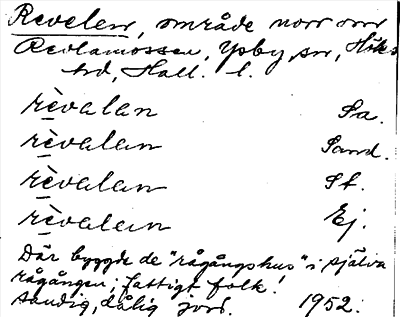 Revelen, område norr om
Revlamossen, Ysby sn, Höks
hd, Hall. l.
rèvalan Sa.
rèvalan Sand.
rèvalan St.
rèvalan Ej.
Där byggde de "rågångshus" i själva
rågången; fattigt folk!
sandig, dålig jord. 1952.